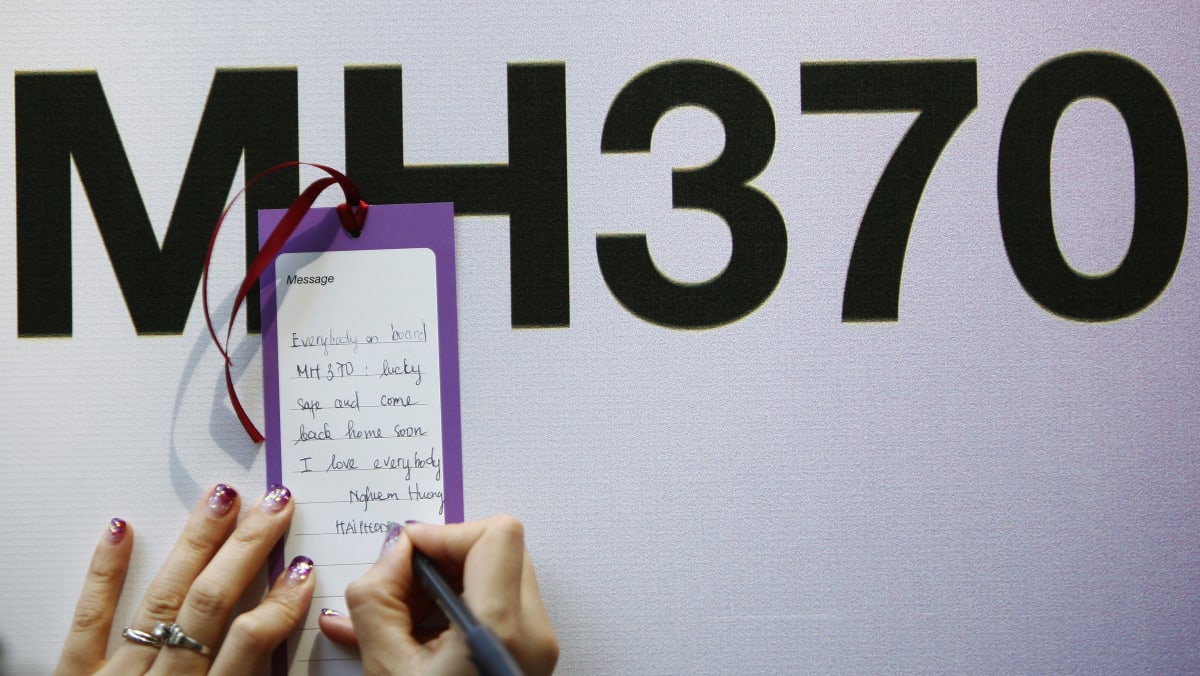 MH370
Message
Everybody on board
MH370 : lucky
safe and come
back home soon
I love everybody
Nghiem Huong